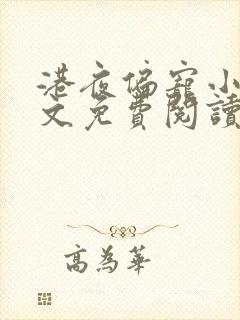 港夜偏寵小
文免費閱讀
高為華